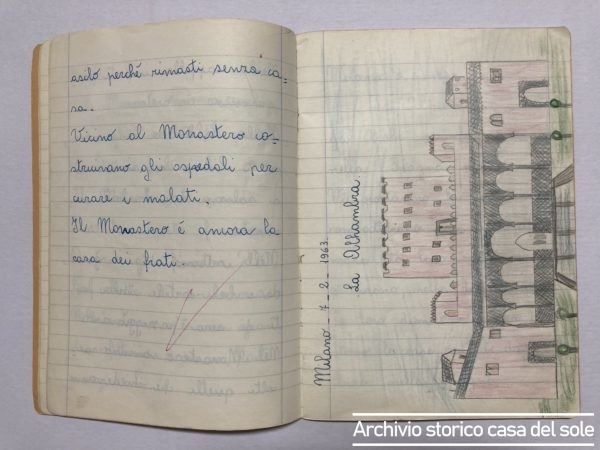 asilo perché rimasti senza ca-
sa.
Vicino al Monastero co-
struivano gli ospedali per
curare i malati.
Il Monastero é ancora la
casa dei frati.
Milano - 7 - 2 - 1963.
La Alhambra.
Archivio storico casa del sole